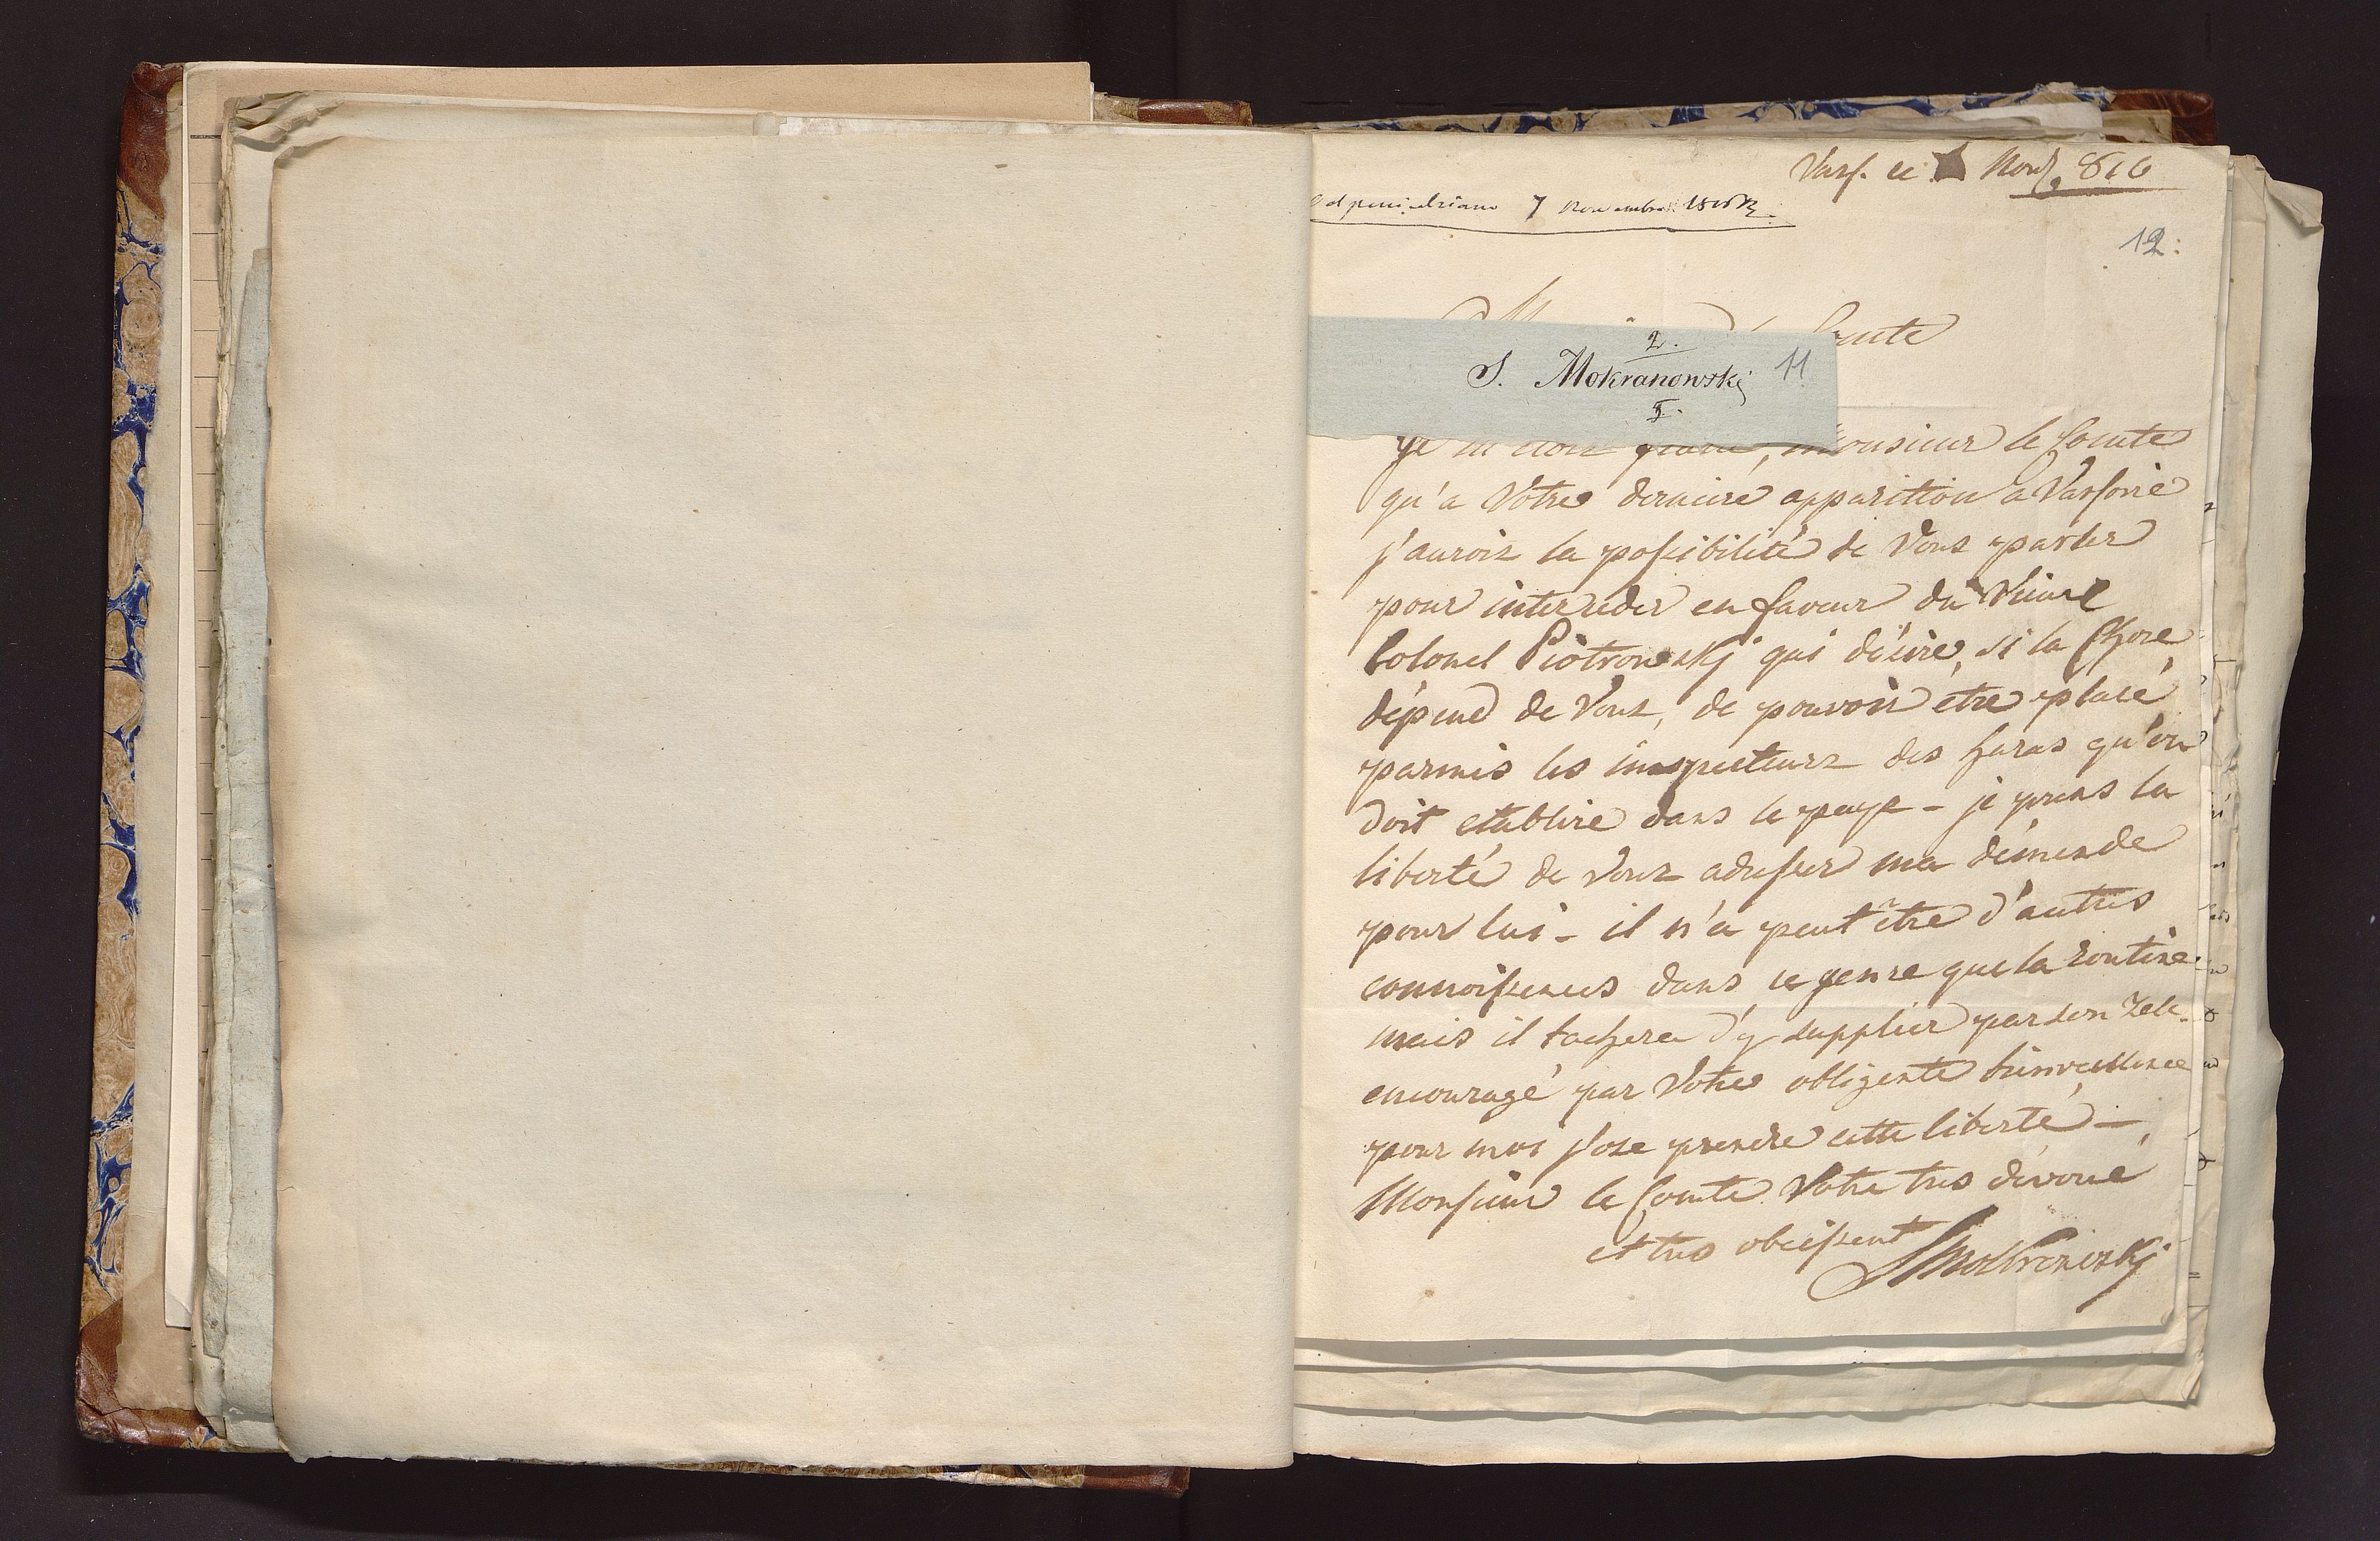 Varf. ce Nov. 816
Odpowiedziano 7 Novembra 1816 R.
12.
2.
S. Mokranowski 11
I.
Je m'etois flatté, Monsieur le Comte
qu'a Votre derniere apparition a Varsovie
j'aurois la possibilité de Vous parler
pour interceder en faveur du Vieux
Colonel Piotrowski qui désire, si la Chose
dépend de Vous, de pouvoir etre placé
parmis les inspecteurs des haras qu'on
doit etablire dans le pays - je prens la
liberté de Vous adresser ma démande
pour lui - il n'a peut être d'autres
connoissences dans ce genre que la routine
mais il tachera d'y supplier par son Zele -
encouragé par Votre obligente bienveillence
pour moi j'ose prendre cette liberté -
Monsieur le Comte Votre tres dévoué
et tres obeissent SMokronoski